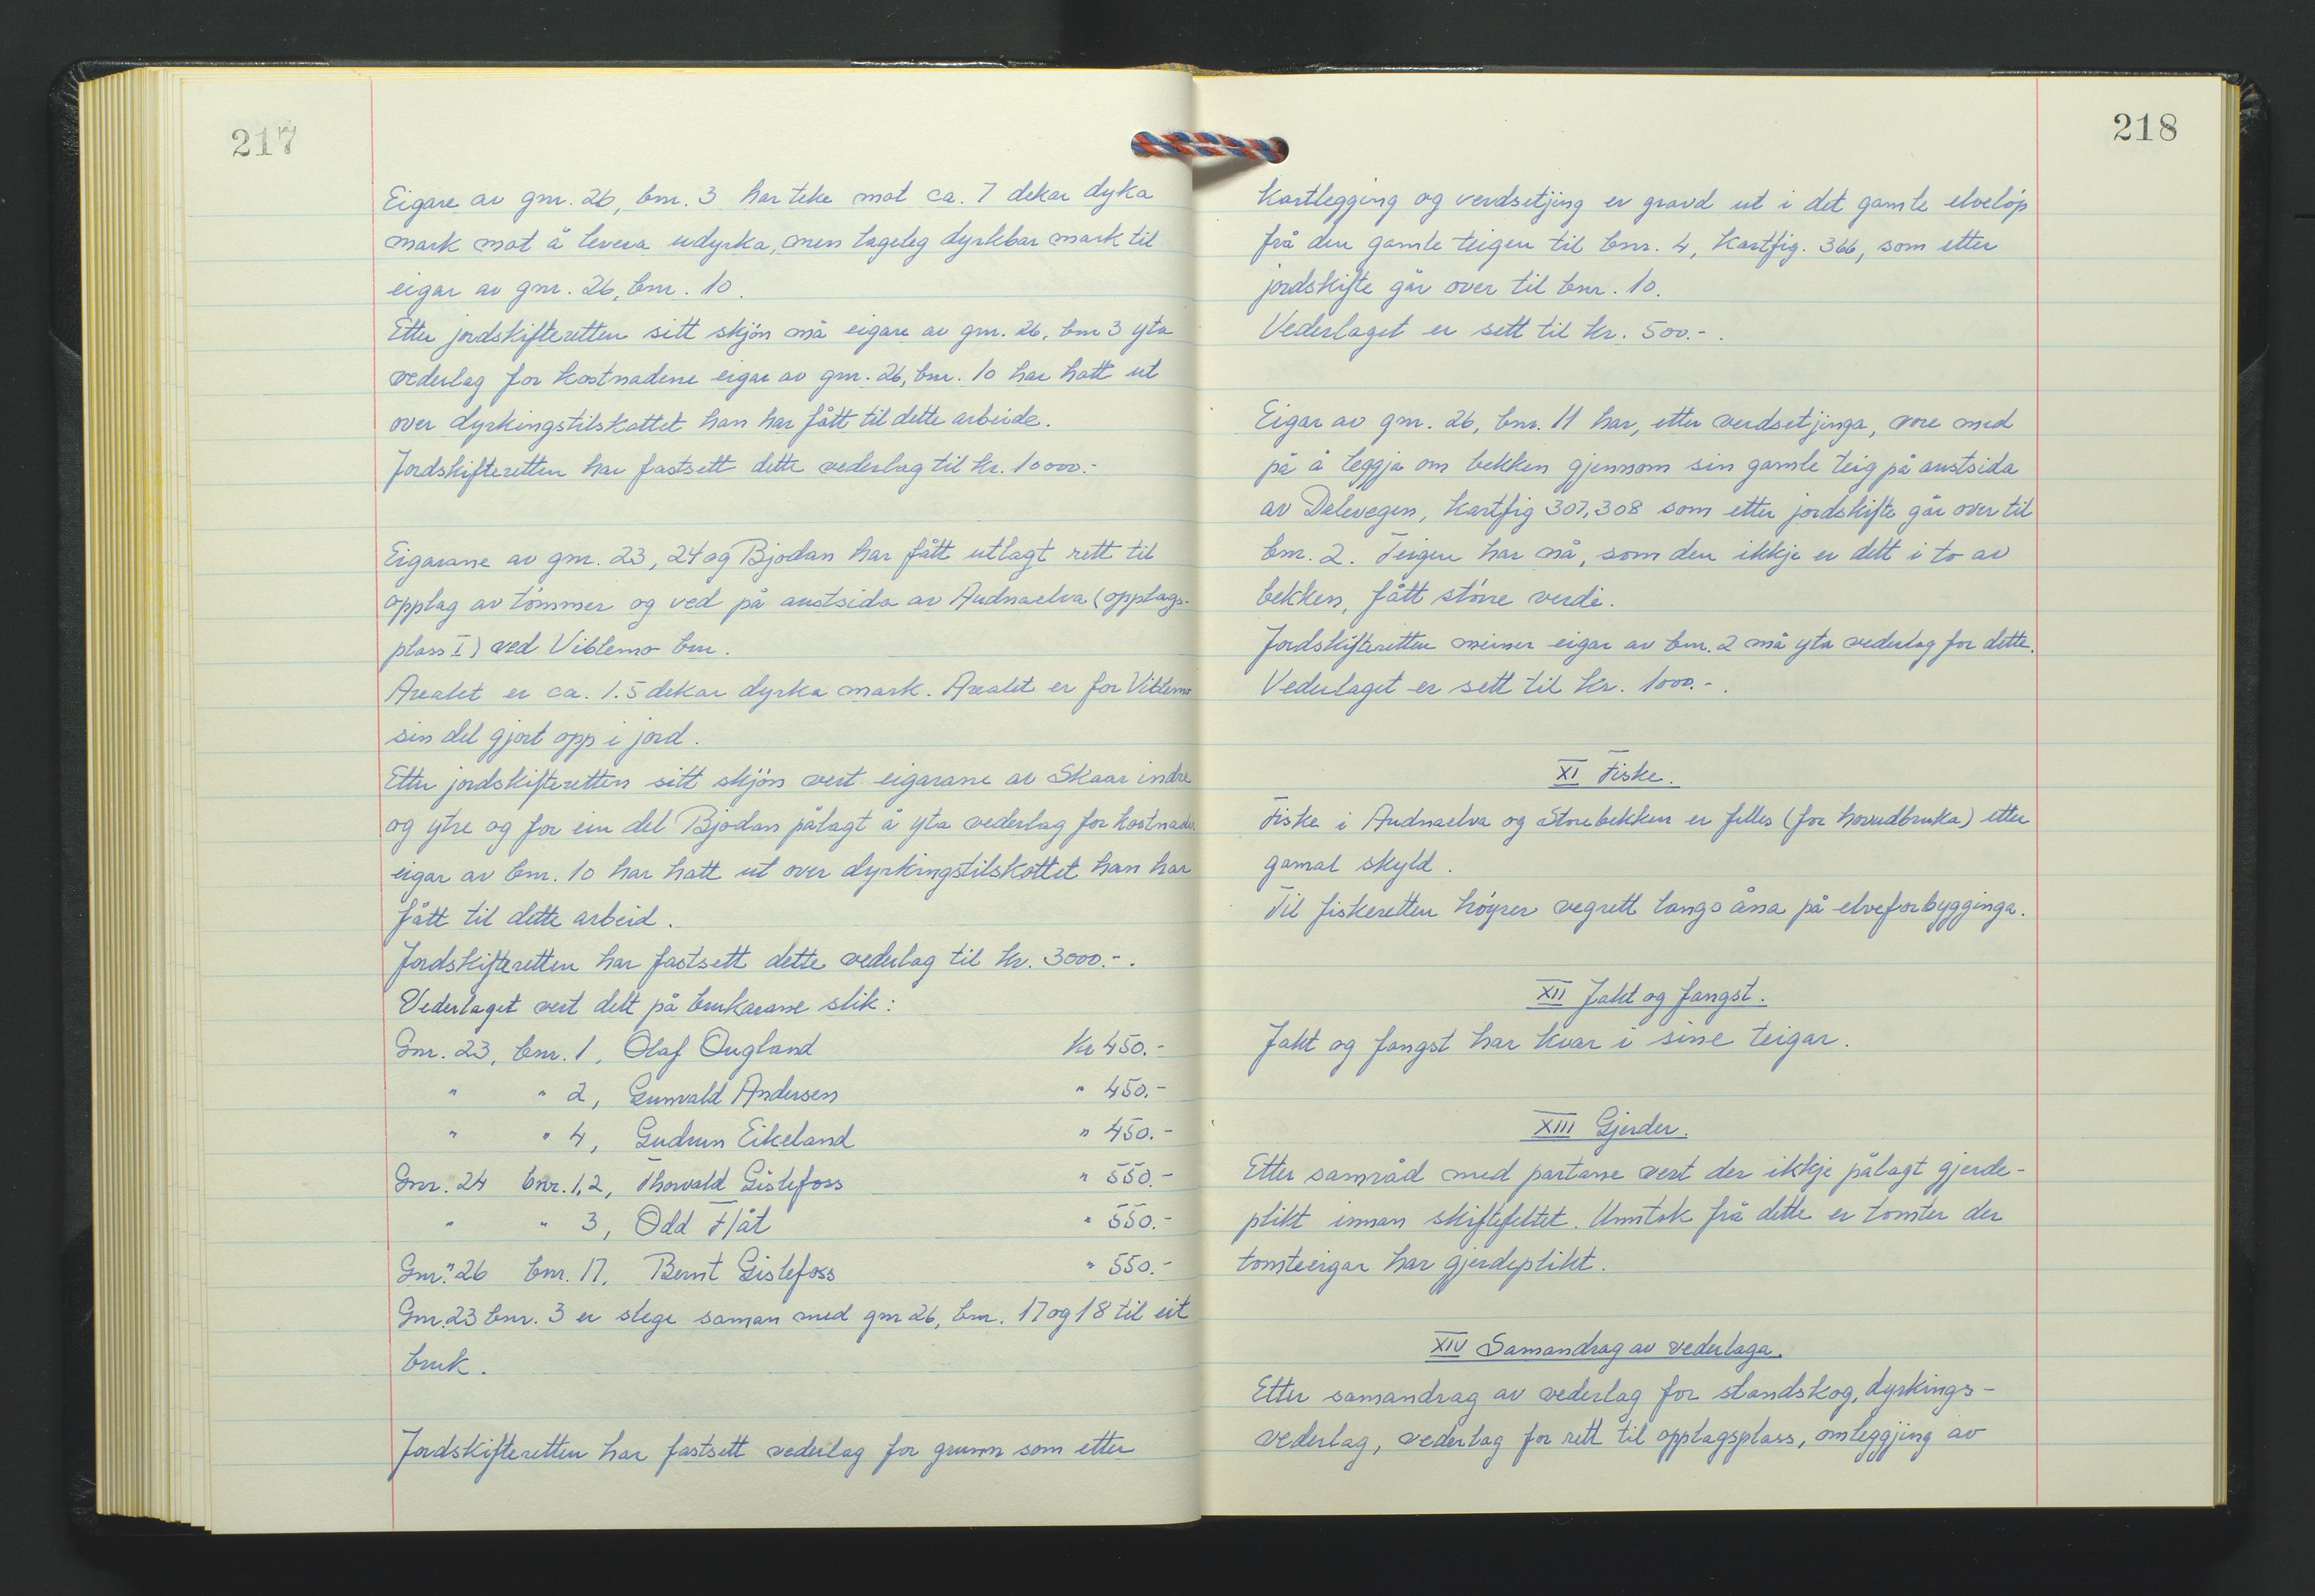 217
Eigare av gnr. 26, bnr. 3 har teke mot ca. 7 dekar dyka
mark mot å levera udyrka, men lageleg dyrkbar mark til
eigar av gnr. 26, bnr. 10.
Etter jordskifteretten sitt skjøn må eigare av gnr. 26, bnr 3 yta
vederlag for kostnadene eigar av gnr. 26, bnr. 10 har hatt ut
over dyrkingstilskottet han har fått til dette arbeide.
Jordskifteretten har fastsett dette vederlag til kr. 10000.-
Eigarane av gnr. 23, 24 og Bjodan har fått utlagt rett til
opplag av tømmer og ved på austsida av Audnaelva (opplags-
plass I) ved Viblemo bru.
Arealet er ca. 1.5 dekar dyrka mark. Arealet er for Viblemo
sin del gjort opp i jord.
Etter jordskifteretten sitt skjøn vert eigarane av Skaar indre
og ytre og for ein del Bjodan pålagt å yta vederlag for kostnader
eigar av bnr. 10 har hatt ut over dyrkingstilskottet han har
fått til dette arbeid.
Jordskifteretten har fastsett dette vederlag til kr. 3000.-.
Vederlaget vert delt på brukarane slik:
Gnr. 23, bnr. 1, Olaf Ougland Kr 450.-
" " 2, Gunvald Andersen " 450.-
" " 4, Gudrun Eikeland " 450.-
Gnr. 24 bnr. 1,2, Thorvald Gislefoss " 550.-
" " 3, Odd Flåt " 550.-
Gnr." 26 bnr. 17, Bernt Gislefoss " 550.-
Gnr. 23 bnr. 3 er slege saman med gnr 26, bnr. 17 og 18 til eit
bruk.
Jordskifteretten har fastsett vederlag for grunn som etter
218
kartlegging og verdsetjing er gravd ut i det gamle elveløp
frå den gamle teigen til bnr. 4, kartfig. 366, som etter
jordskifte går over til bnr. 10.
Vederlaget er sett til kr. 500.-.
Eigar av gnr. 26, bnr. 11 har, etter verdsetjinga, vore med
på å leggja om bekken gjennom sin gamle teig på austsida
av Delevegen, kartfig 307, 308 som etter jordskifte går over til
bnr. 2. Teigen har nå, som den ikkje er delt i to av
bekken, fått større verdi.
Jordskifteretten meiner eigar av bnr. 2 må yta vederlag for dette.
Vederlaget er sett til kr. 1000.-.
XI Fiske.
Fiske i Audnaelva og Storebekken er felles (for hovudbruka) etter
gamal skyld.
Til fiskeretten høyrer vegrett langs åna på elveforbygginga.
XII Jakt og fangst.
Jakt og fangst har kvar i sine teigar.
XIII Gjerder.
Etter samråd med partane vert der ikkje pålagt gjerde-
plikt innan skiftefeltet. Unntak frå dette er tomter der
tomteeigar har gjerdeplikt.
XIV Samandrag av vederlaga.
Etter samandrag av vederlag for standskog, dyrkings-
vederlag, vederlag for rett til opplagsplass, omleggjing av